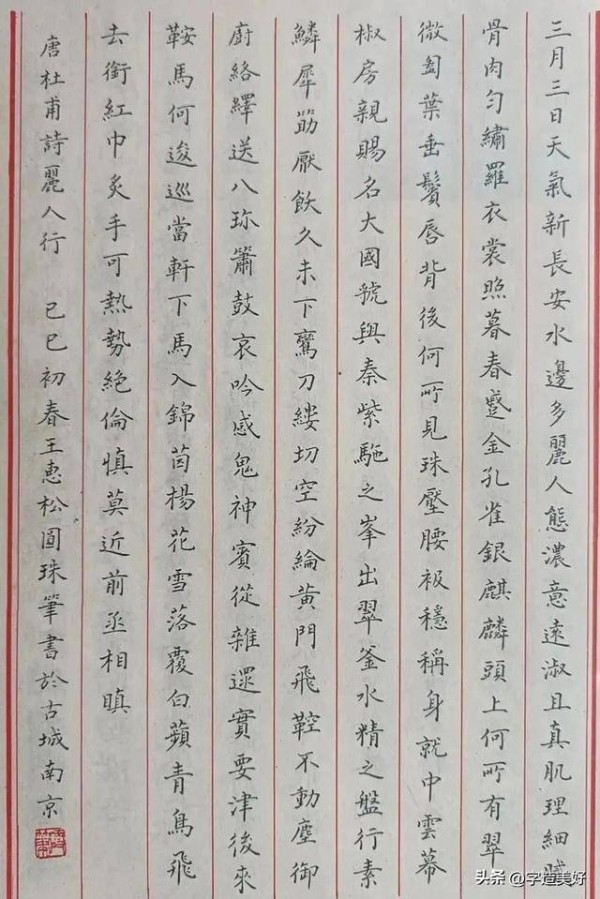 三月三日天氣新長安水邊多麗人態濃意遠淑且真肌理細膩
骨肉勻繡羅衣裳照暮春蹙金孔雀銀麒麟頭上何所有翠
微㔩葉垂鬢唇背後何所見珠壓腰衱穩稱身就中雲幕
椒房親賜名大國虢與秦紫駞之峯出翠釜水精之盤行素
鱗犀筯厭飫久未下鸞刀縷切空紛綸黃門飛鞚不動塵御
廚絡繹送八珍簫鼓哀吟感鬼神賓從雜遝實要津後來
鞍馬何逡巡當軒下馬入錦茵楊花雪落覆白蘋青鳥飛
去銜紅巾炙手可熱勢絕倫慎莫近前丞相瞋
唐杜甫詩麗人行 己巳初春王惠松圓珠筆書於古城南京
头条 @字造美好